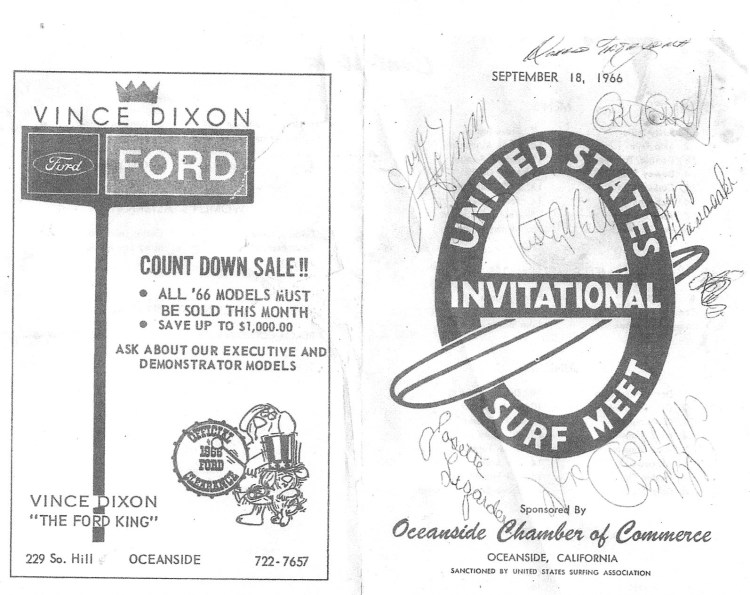 VINCE DIXON
Ford
FORD
COUNT DOWN SALE !!
• ALL '66 MODELS MUST
BE SOLD THIS MONTH
• SAVE UP TO $1,000.00
ASK ABOUT OUR EXECUTIVE AND
DEMONSTRATOR MODELS
OFFICIAL
1966
FORD
CLEARANCE
VINCE DIXON
"THE FORD KING"
229 So. Hill OCEANSIDE 722-7657
SEPTEMBER 18, 1966
Joyce
Hoffman
UNITED STATES
INVITATIONAL
SURF MEET
Josette
Lagardere
Sponsored By
Oceanside Chamber of Commerce
OCEANSIDE, CALIFORNIA
SANCTIONED BY UNITED STATES SURFING ASSOCIATION